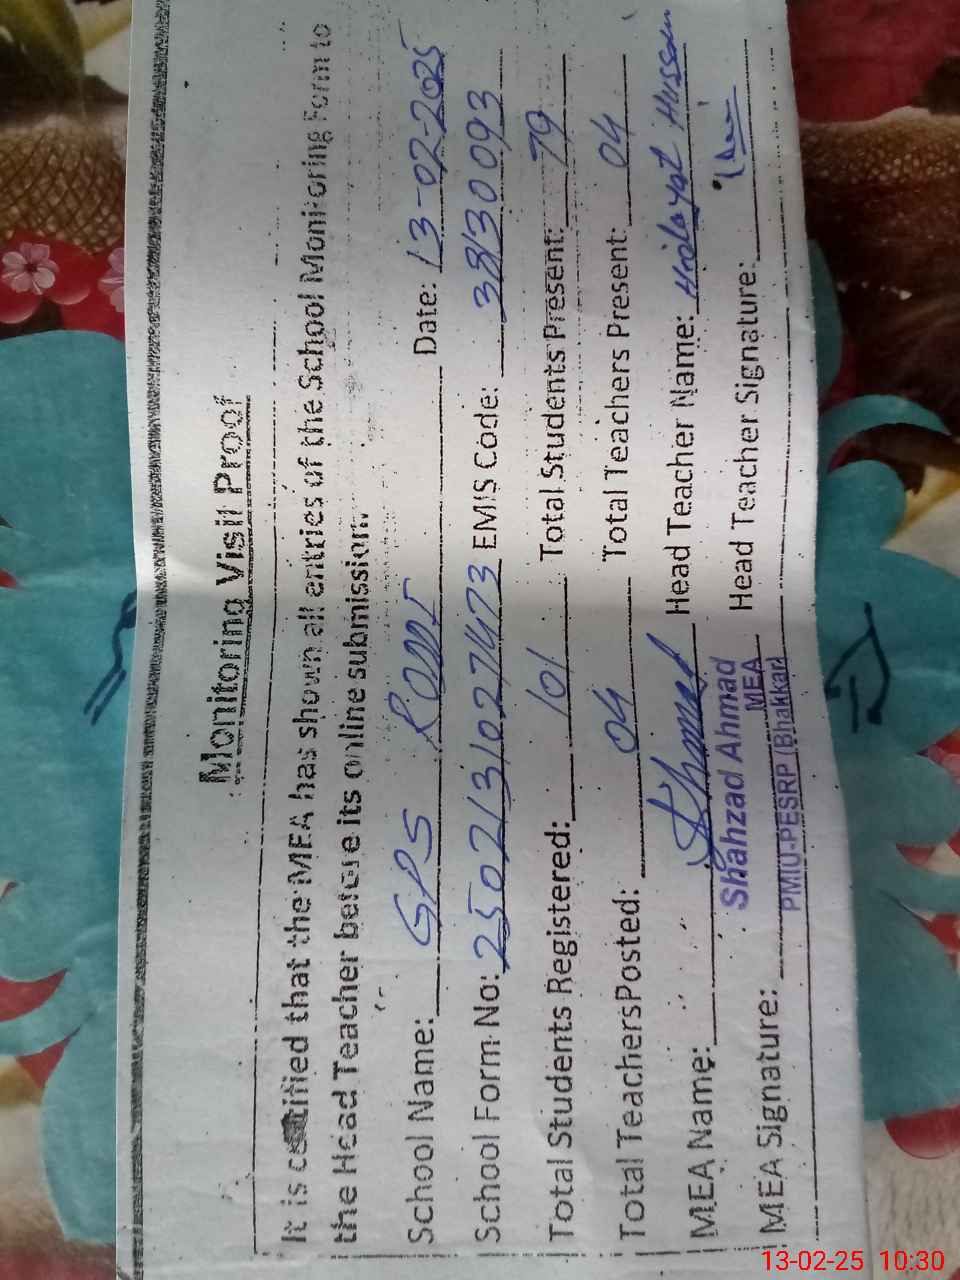 Monitoring Visit Proof
It is certified that the MEA has shown all entries of the School Monitoring Form to
the Head Teacher before its online submission.
School Name: GPS Date: 13-02-2025
School Form No: 2502131027473 EMIS Code: 38130093
Total Students Registered: 101 Total Students Present: 79
Total TeachersPosted: 04 Total Teachers Present: 04
MEA Name: Head Teacher Name: Hussain
Shahzad Ahmad
MEA
PMIU-PESRP (Bhakkar)
MEA Signature: Head Teacher Signature:
13-02-25 10:30